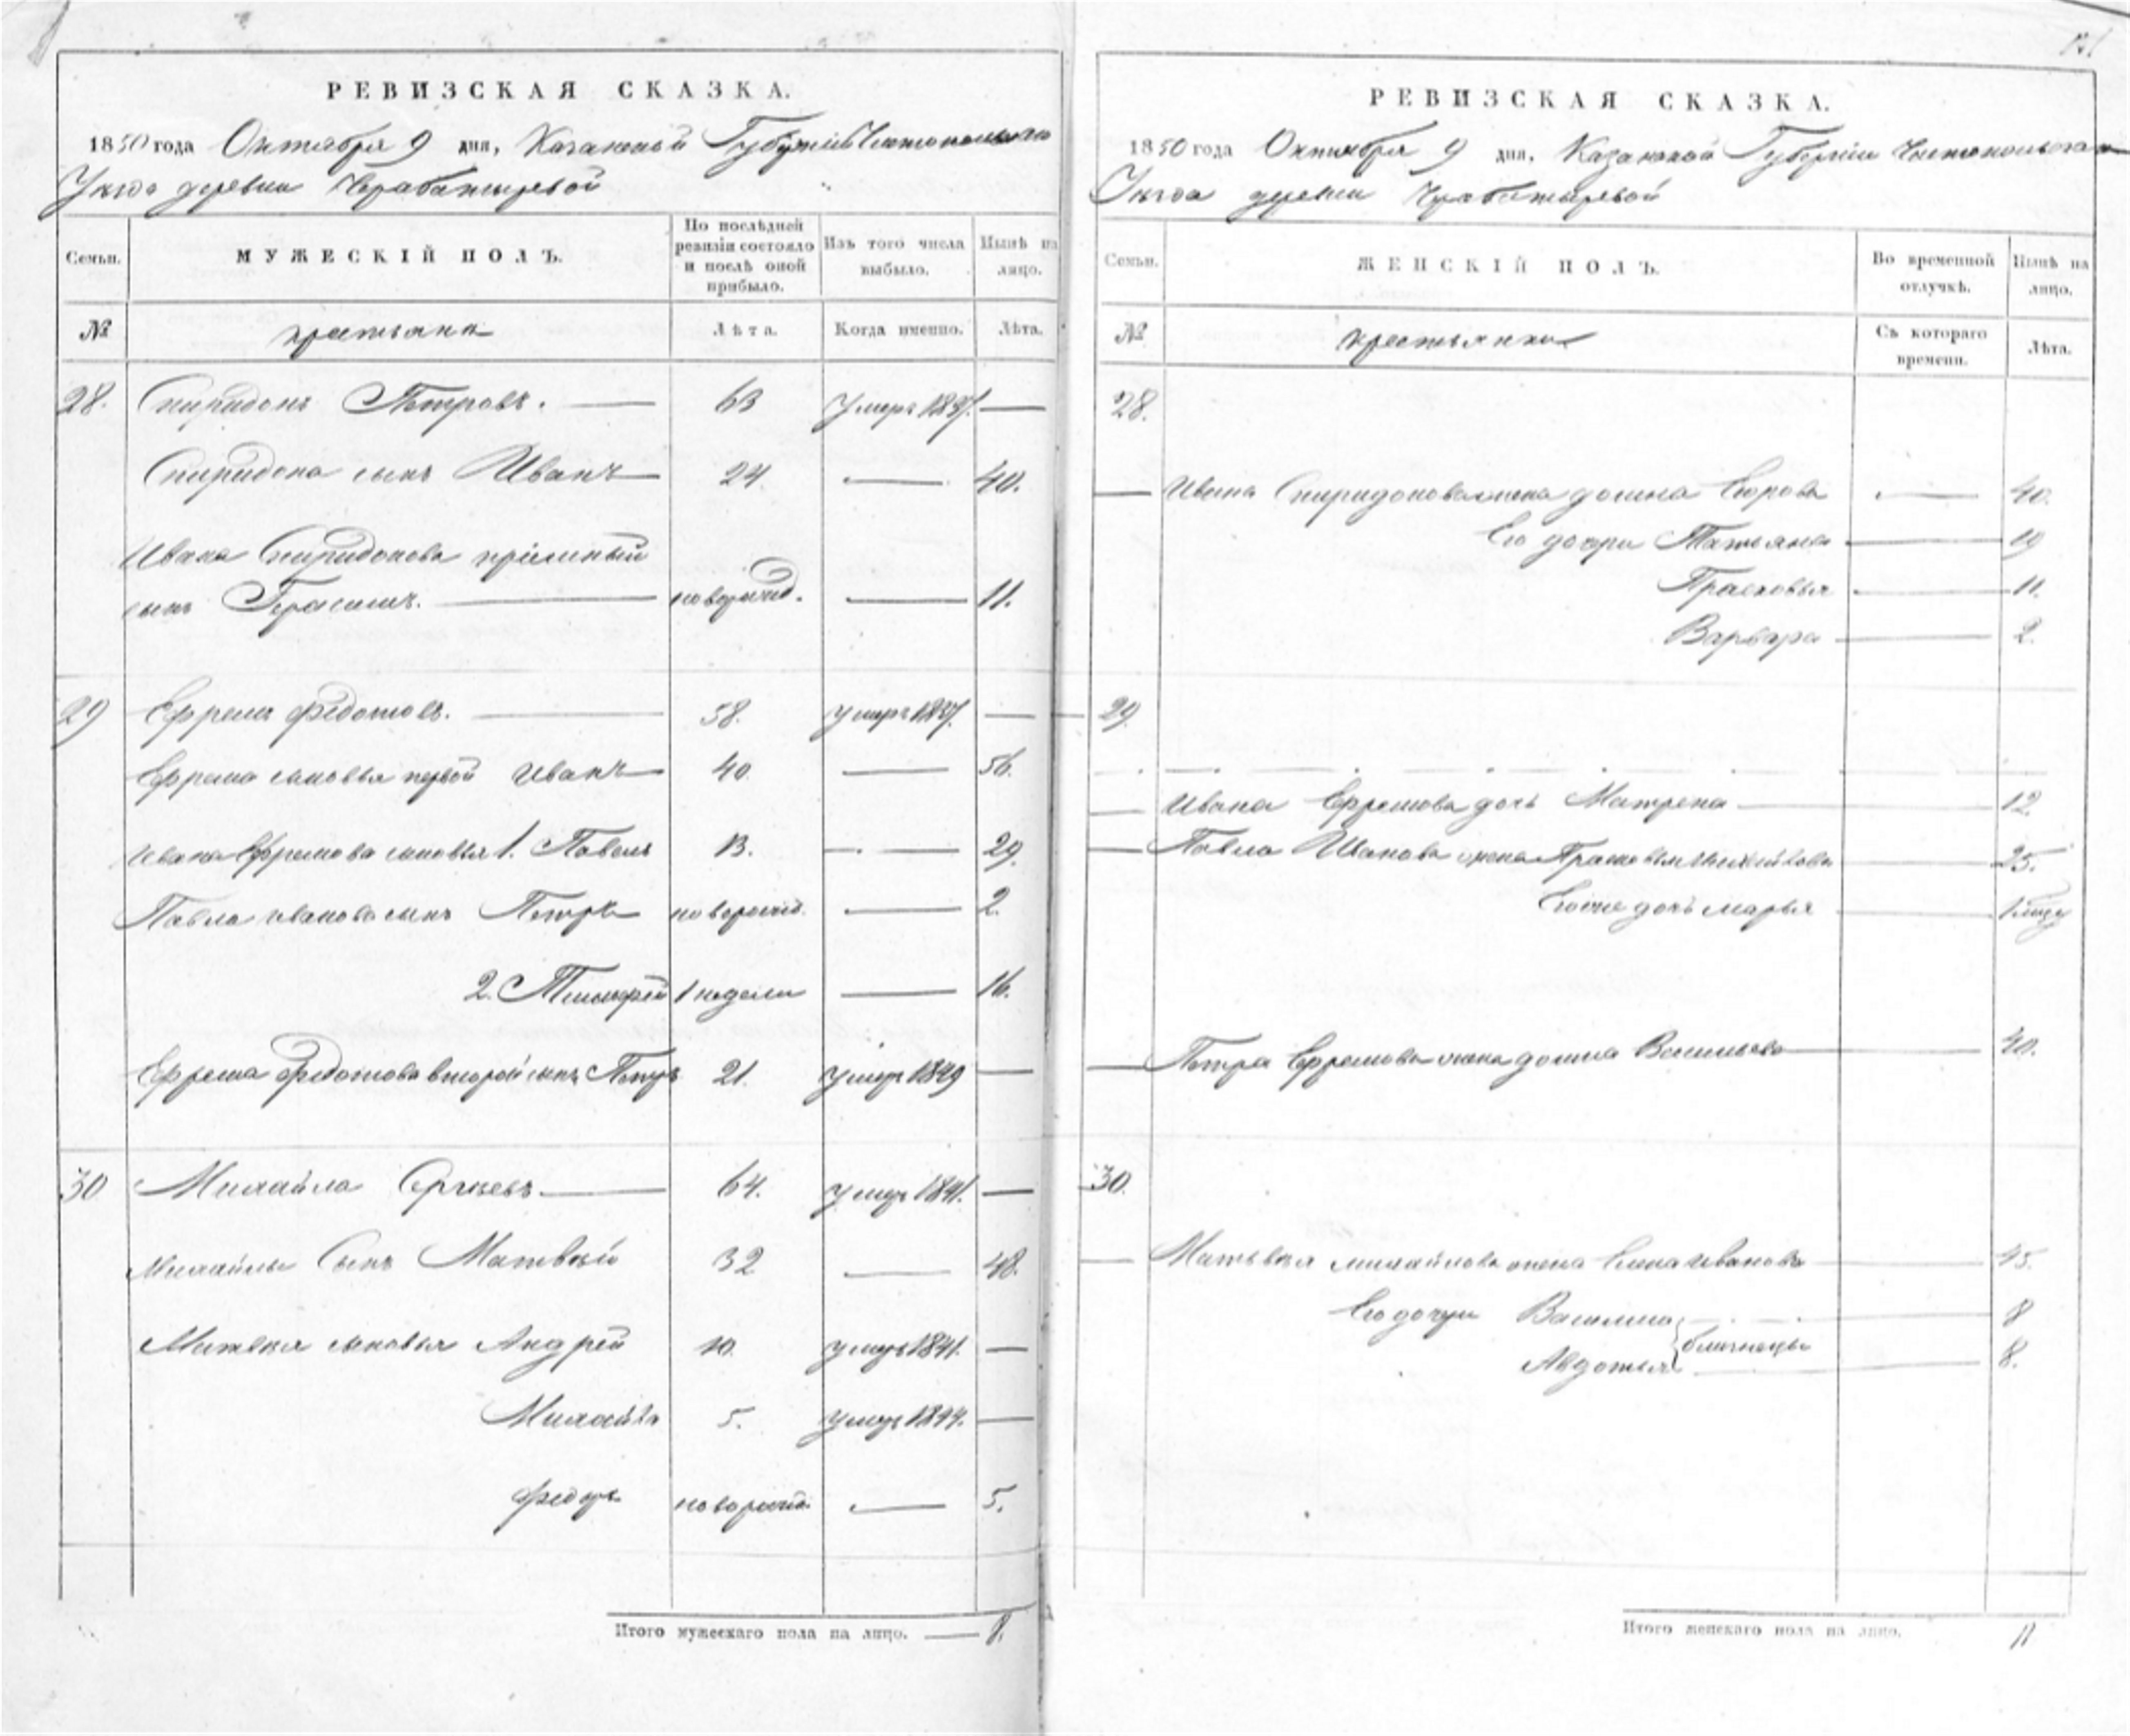 РЕВИЗСКАЯ СКАЗКА.
1850 года Октября 9 дня, Казанской Губерніи Чистопольскаго
Уезда деревни
Семьи.
МУЖЕСКІЙ ПОЛЪ.
По послѣдней ревизіи состояло и послѣ оной прибыло.
Изъ того числа выбыло.
Нынѣ на лицо.
№
крестьяне
Лѣта.
Когда именно.
Лѣта.
28. Спиридонъ Петровъ. 63 умеръ 1837. —
Спиридона сынъ Иванъ 24. — 40.
Ивана Спиридонова пріемный
сынъ Герасимъ. новорожд. — 11.
29 Ефремъ Федотовъ. 58. умеръ 1837. —
Ефрема сыновья первой Иванъ 40 — 56.
Ивана Ефремова сыновья 1. Павелъ 13. — 29.
Павла Иванова сынъ Петръ новорожд. — 2.
2. 1 недели — 16.
Ефрема Федотова второй сынъ Петръ 21. умеръ 1849 —
30 Михайла Сергѣевъ. 64. умеръ 1841. —
Михайлы Сынъ Матвѣй 32 — 48.
Матвѣя сыновья Андрей 10. умеръ 1841. —
Михайла 5. умеръ 1844. —
Федоръ новорожд. — 5.
Итого мужескаго пола на лицо. — 8.
РЕВИЗСКАЯ СКАЗКА.
1850 года Октября 9 дня, Казанской Губерніи Чистопольскаго
Уезда деревни
Семьи.
ЖЕНСКІЙ ПОЛЪ.
Во временной отлучкѣ.
Нынѣ на лицо.
№
крестьянки
Съ котораго времени.
Лѣта.
28.
— Ивана Спиридонова жена Домна Егорова — 40.
Его дочери Татьяна — 19
Прасковья — 11.
Варвара — 2.
29.
— Ивана Ефремова дочь Матрена — 12
— Павла Иванова жена — 25.
дочь Марья —
— Петра Ефремова жена Домна Васильева — 40.
30.
— Матвѣя Михайлова жена Елена Иванова — 45.
Его дочери Василиса — 8
близнецы
Авдотья — 8.
Итого женскаго пола на лицо. 11